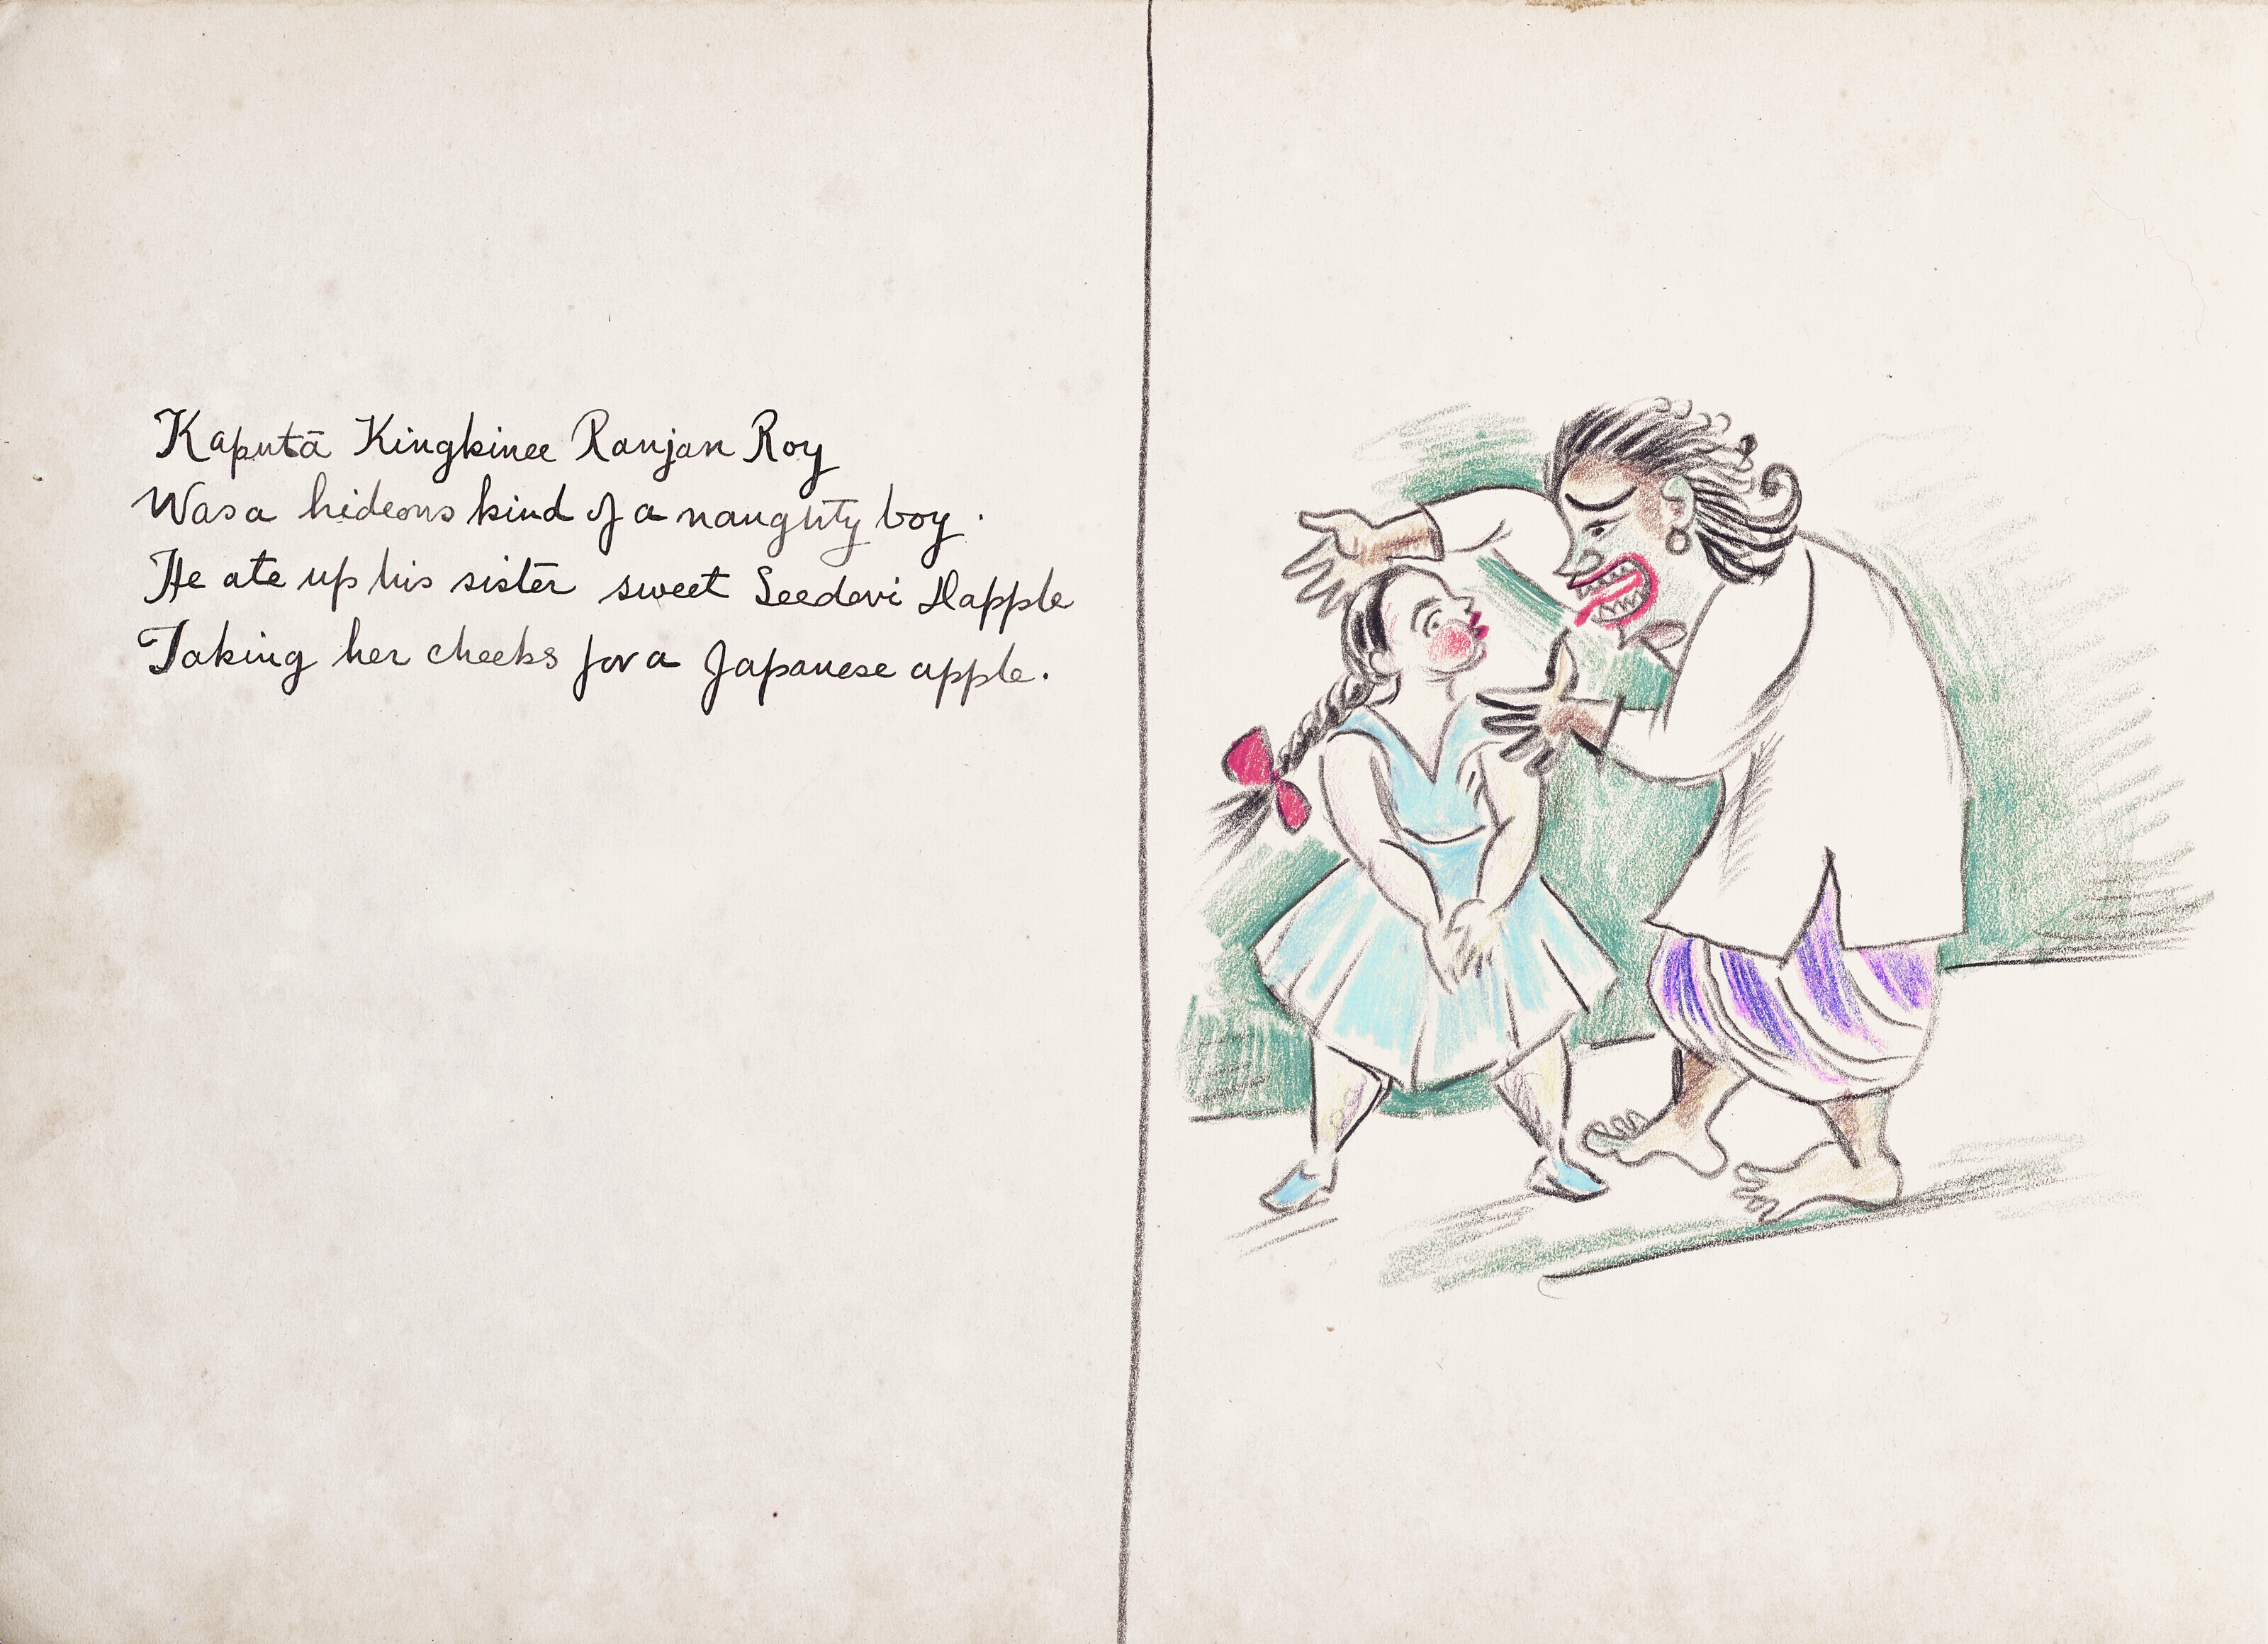 Kaputā Kingkinee Ranjan Roy
Was a hideous kind of a naughty boy.
He ate up his sister sweet Seedevi Dapple
Taking her cheeks for a Japanese apple.